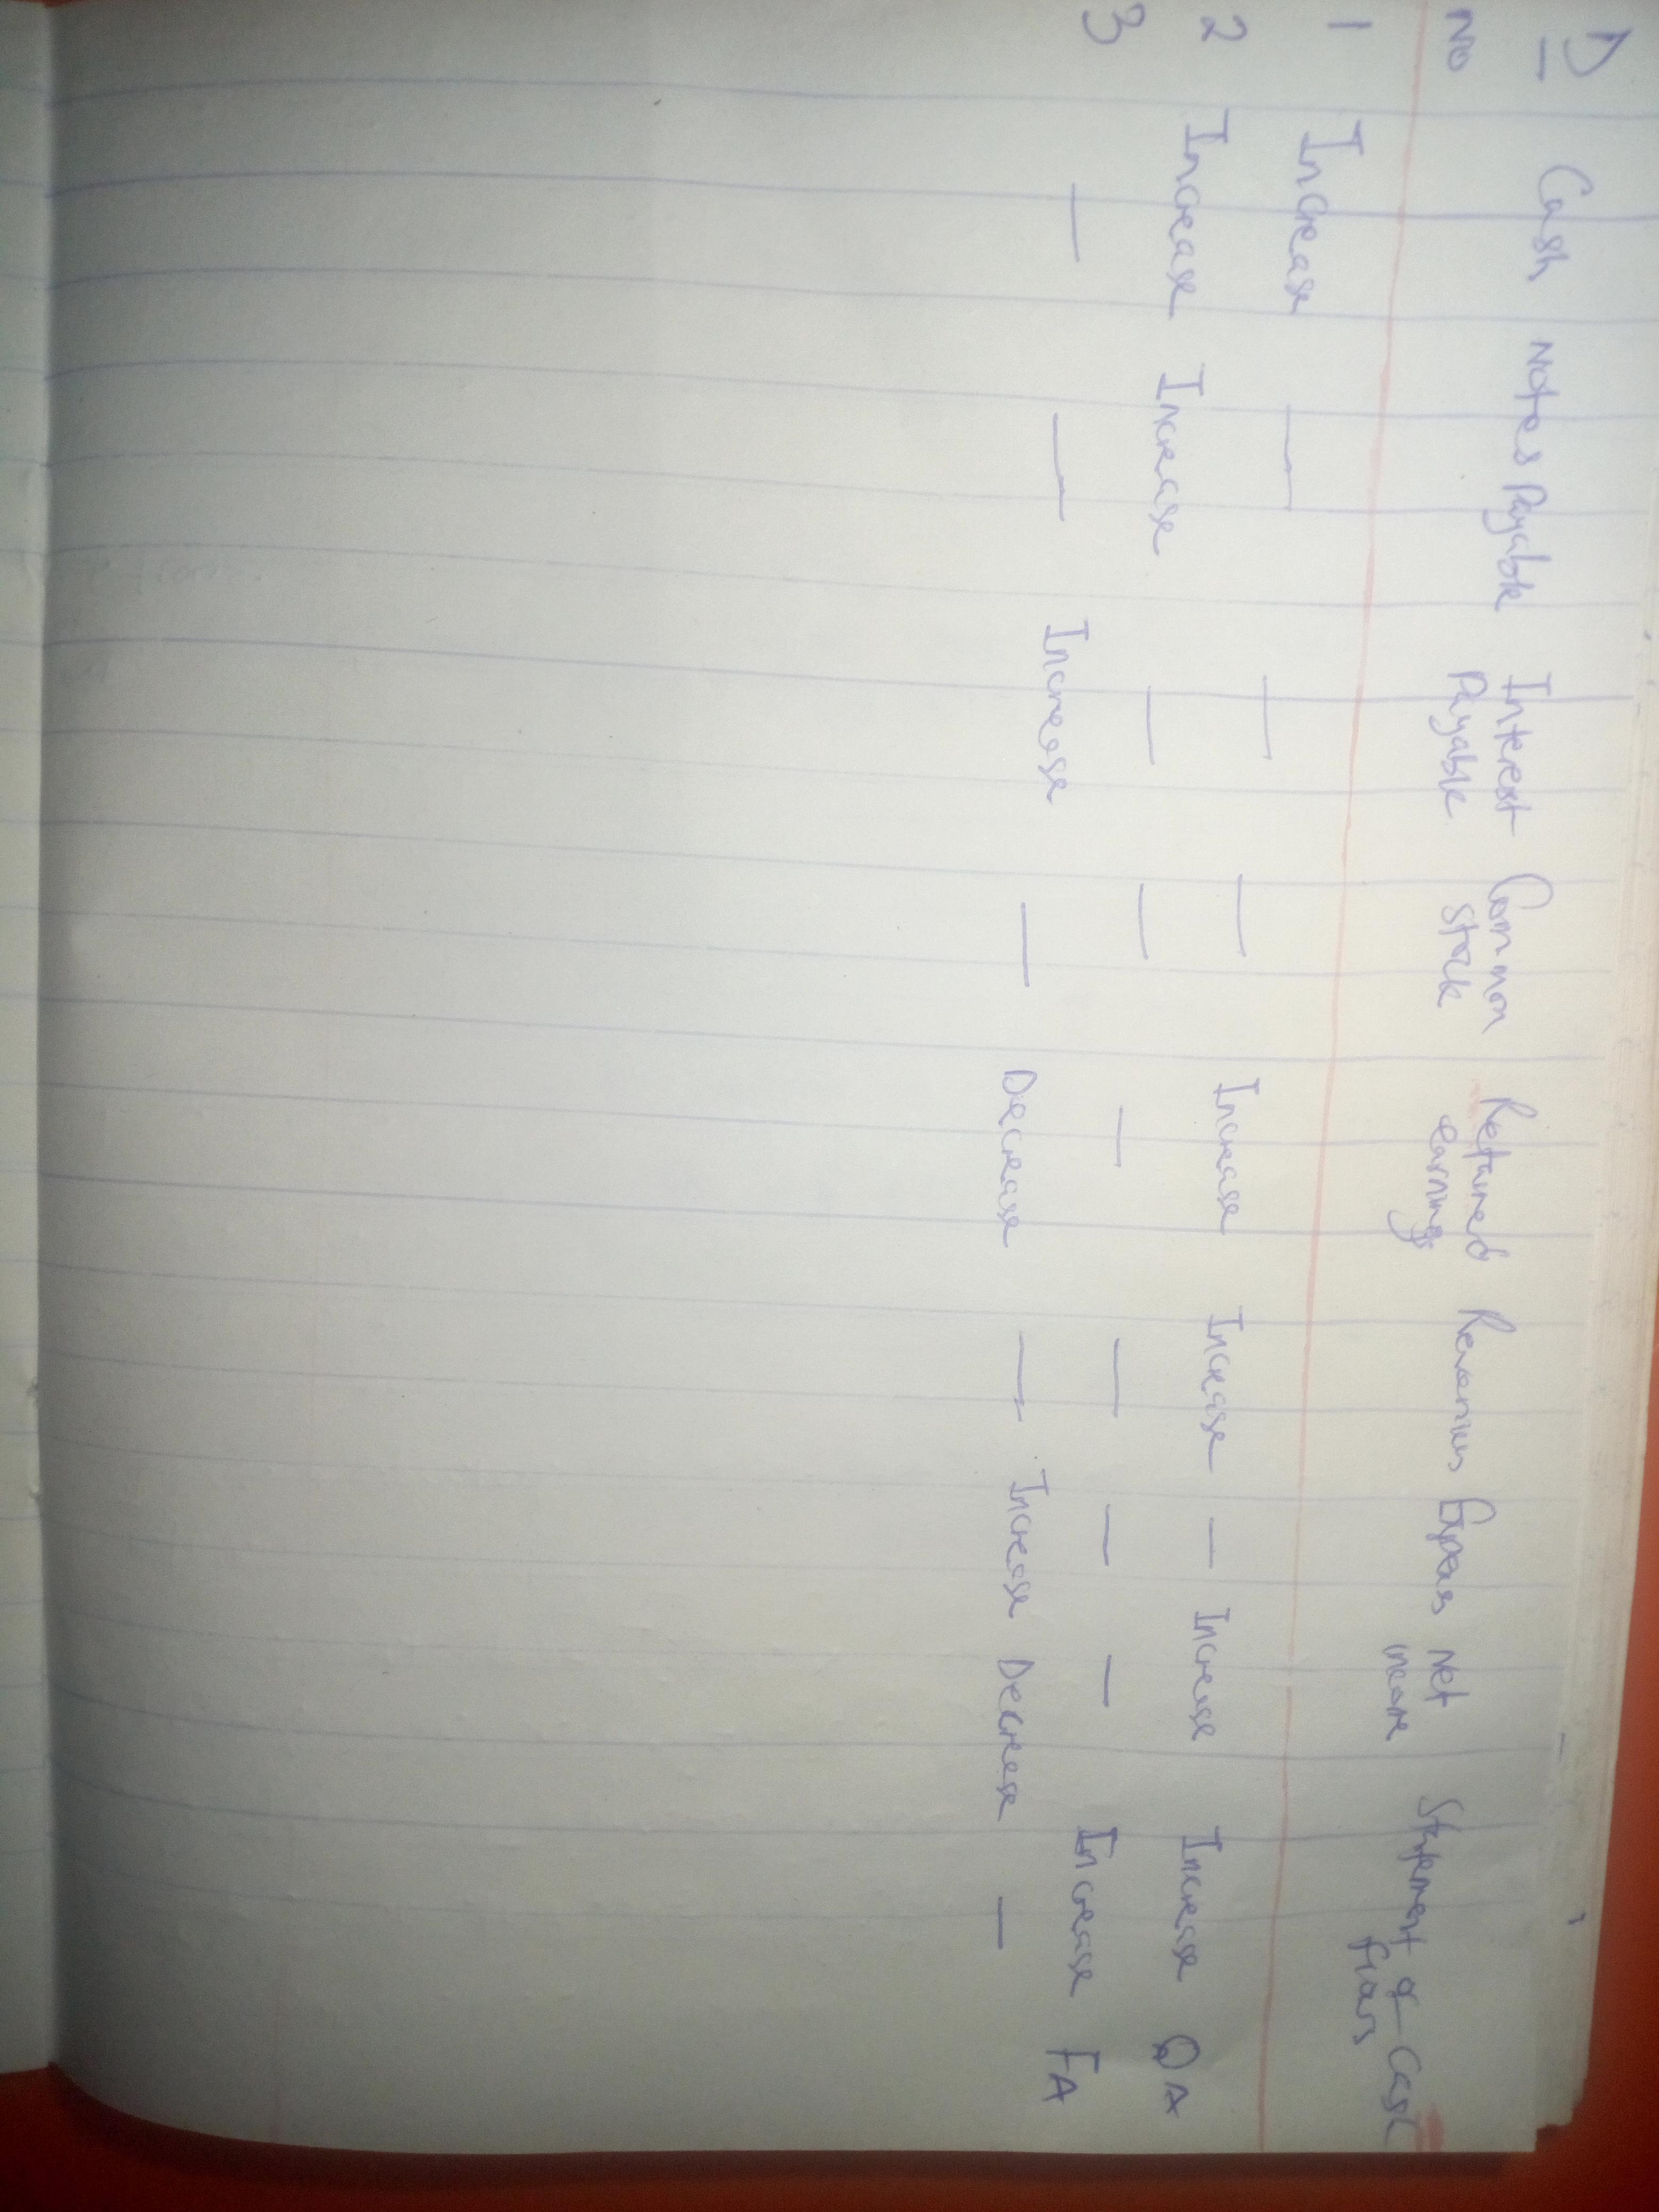 1)
No Cash Notes Payable Interest Payable Common Stock Retained earnings Revenues Expens Net income Statement of Cash flows
1 Increase — — — Increase Increase — Increase Increase OA
2 Increase Increase — — — — — — Increase FA
3 — — Increase — Decrease — Increase Decrease —